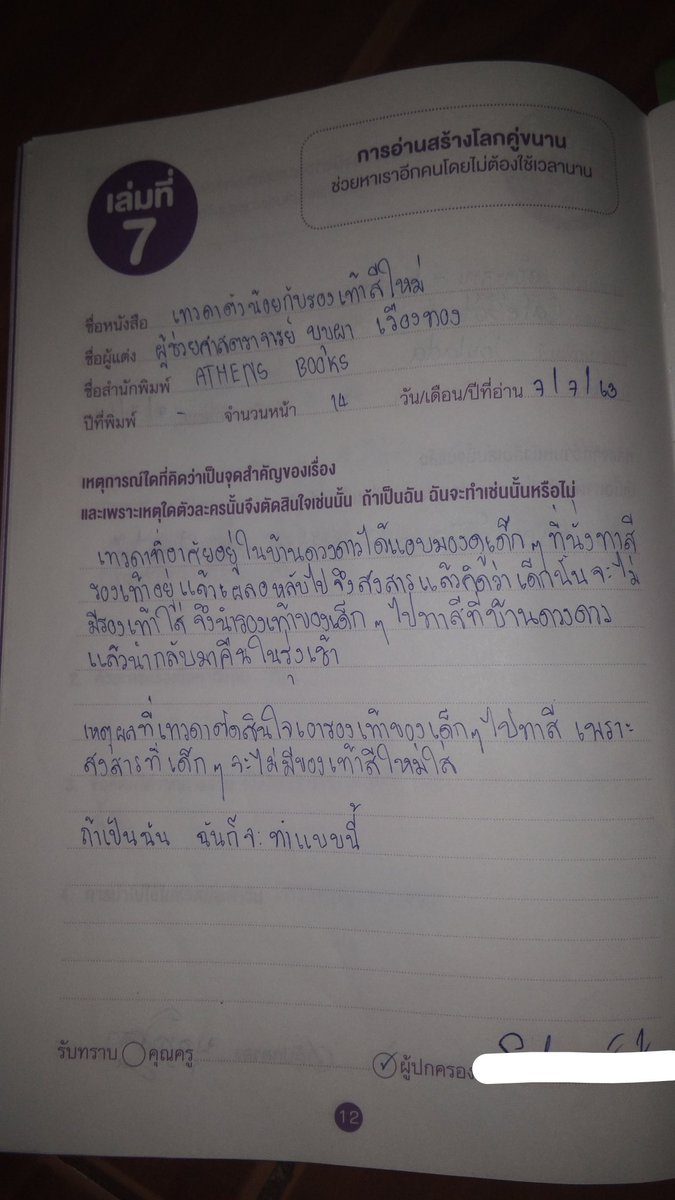 การอ่านสร้างโลกคู่ขนาน
ช่วยหาเราอีกคนโดยไม่ต้องใช้เวลานาน
เล่มที่
7
ชื่อหนังสือ เทวดาตัวน้อยกับรองเท้าสีใหม่
ชื่อผู้แต่ง ผู้ช่วยศาสตราจารย์ บุบผา เรืองทอง
ชื่อสำนักพิมพ์ ATHENS BOOKS
ปีที่พิมพ์ - จำนวนหน้า 14 วัน/เดือน/ปีที่อ่าน 7/7/63
เหตุการณ์ใดที่คิดว่าเป็นจุดสำคัญของเรื่อง
และเพราะเหตุใดตัวละครนั้นจึงตัดสินใจเช่นนั้น ถ้าเป็นฉัน ฉันจะทำเช่นนั้นหรือไม่
เทวดาที่อาศัยอยู่ในบ้านดวงดาวได้แอบมองดูเด็กๆ ที่นั่งทาสี
รองเท้าอยู่แล้วเผลอหลับไป จึงสงสารแล้วคิดว่าเด็กนั้นจะไม่
มีรองเท้าใส่ จึงนำรองเท้าของเด็กๆ ไปทาสีที่บ้านดวงดาว
แล้วนำกลับมาคืนในรุ่งเช้า
เหตุผลที่เทวดาตัดสินใจเอารองเท้าของเด็กๆ ไปทาสี เพราะ
สงสารที่เด็กๆ จะไม่มีของเท้าสีใหม่ใส่
ถ้าเป็นฉัน ฉันก็จะทำแบบนี้
รับทราบ คุณครู ผู้ปกครอง
12